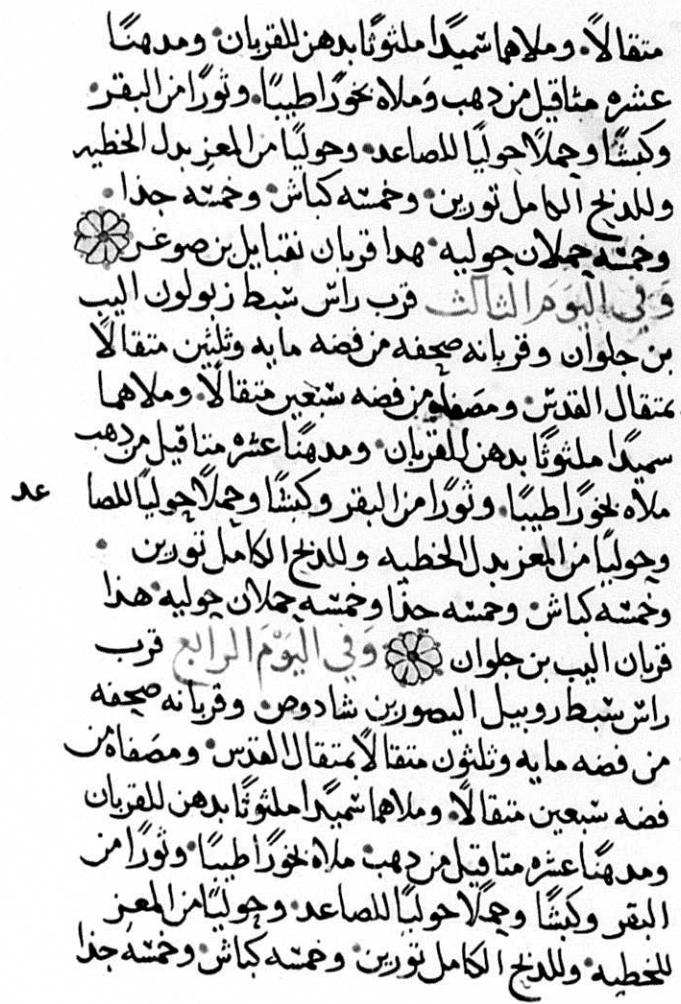 متقالًا. وملاهما سميدًا ملتوتًا بدهن للقربان. ومدهنًا
عشره مثاقيل من دهب وملاه بخورًا طيبًا. وثورًا من البقر.
وكبشًا وحملًا حوليًا للصاعد. وحوليًا من المعز بدل الخطيه
وللدبح الكامل تورين. وخمسه كباش. وخمسه جدا.
وخمسه حملان حوليه. هدا قربان نتنايل بن صوغر
وَفي اليَوم الثالث قرب راس سبط زبولون اليب
بن حلوان وقربانه صحفه من فضه مايه وثلثين متقالًا
بمتقال القدس. ومصفاه من فضه سبعين متقالًا. وملاهما
سميدًا ملتوتًا بدهن للقربان. ومدهنًا عشره متاقيل من دهب
ملاه بخورًا طيبًا. وثورًا من البقر وكبشًا وحملًا حوليًا للصاعد
وحوليًا من المعز بدل الخطيه وللدبح الكامل تورين.
وخمسه كباش. وخمسه جدًا وخمسه حملان حوليه. هذا
قربان اليب بن حلوان وَفي اليَوْمَ الرابع قرب
راس سبط روبيل اليصور بن شادوص. وقربانه صحفه
من فضه مايه وثلثون متقالًا بمتقال القدس. ومصفاه من
فضه سبعين متقالًا. وملاهما سميدًا ملتوتًا بدهن للقربان
ومدهنًا عشره متاقيل من دهب. ملاه بخورًا طيبًا. وثورًا من
البقر وكبشًا وحملًا حوليًا للصاعد. وحوليًا من المعز
للخطيه. وللدبح الكامل تورين. وخمسه كباش. وخمسه جدا